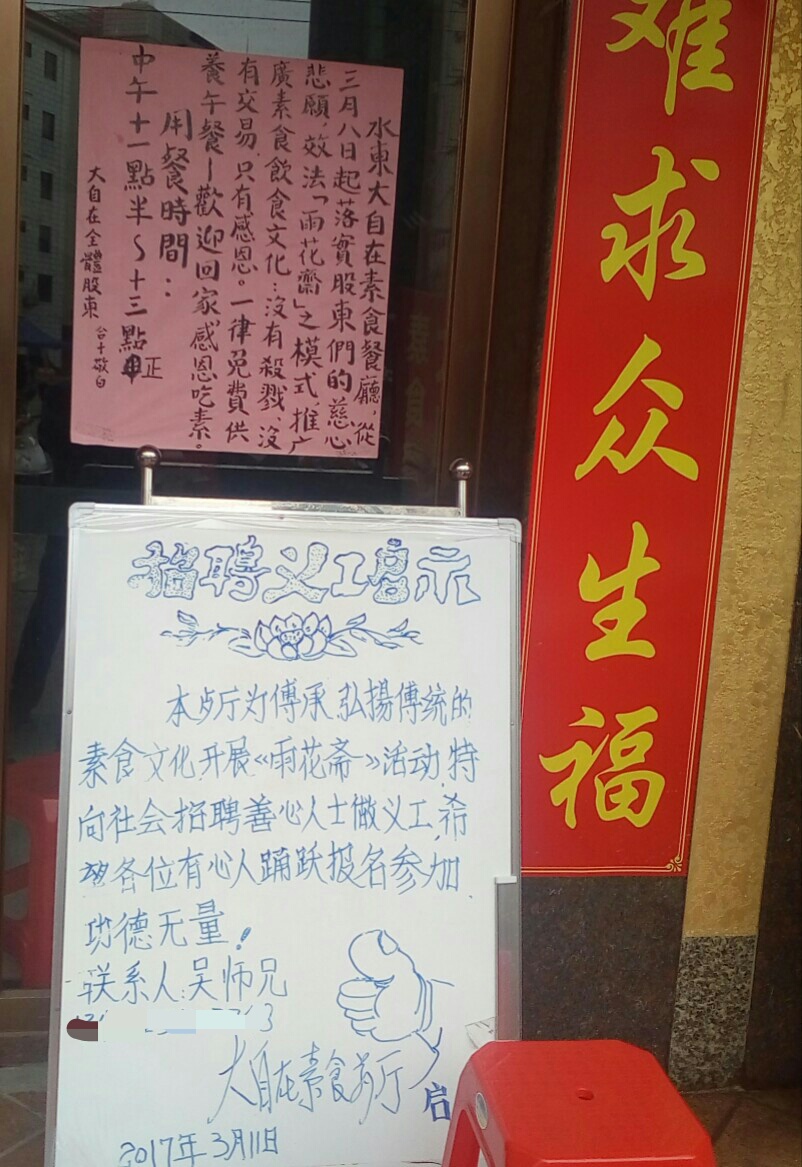 水東大自在素食餐廳,從
三月八日起落實股東們的慈心
悲願,效法「雨花齋」之模式,推广
廣素食飲食文化:沒有殺戮,沒
有交易,只有感恩。一律免費供
養午餐—歡迎回家感恩吃素。
用餐時間:
中午十一點半~十三點正
大自在全體股東 合十敬白
招聘义工启示
本歺厅为傳承弘揚傳统的
素食文化开展《雨花斋》活动,特
向社会招聘善心人士做义工,希
望各位有心人踊跃报名参加
功德无量!
联系人:吴师兄
大自在素食歺厅
启
2017年3月11日
难求众生福